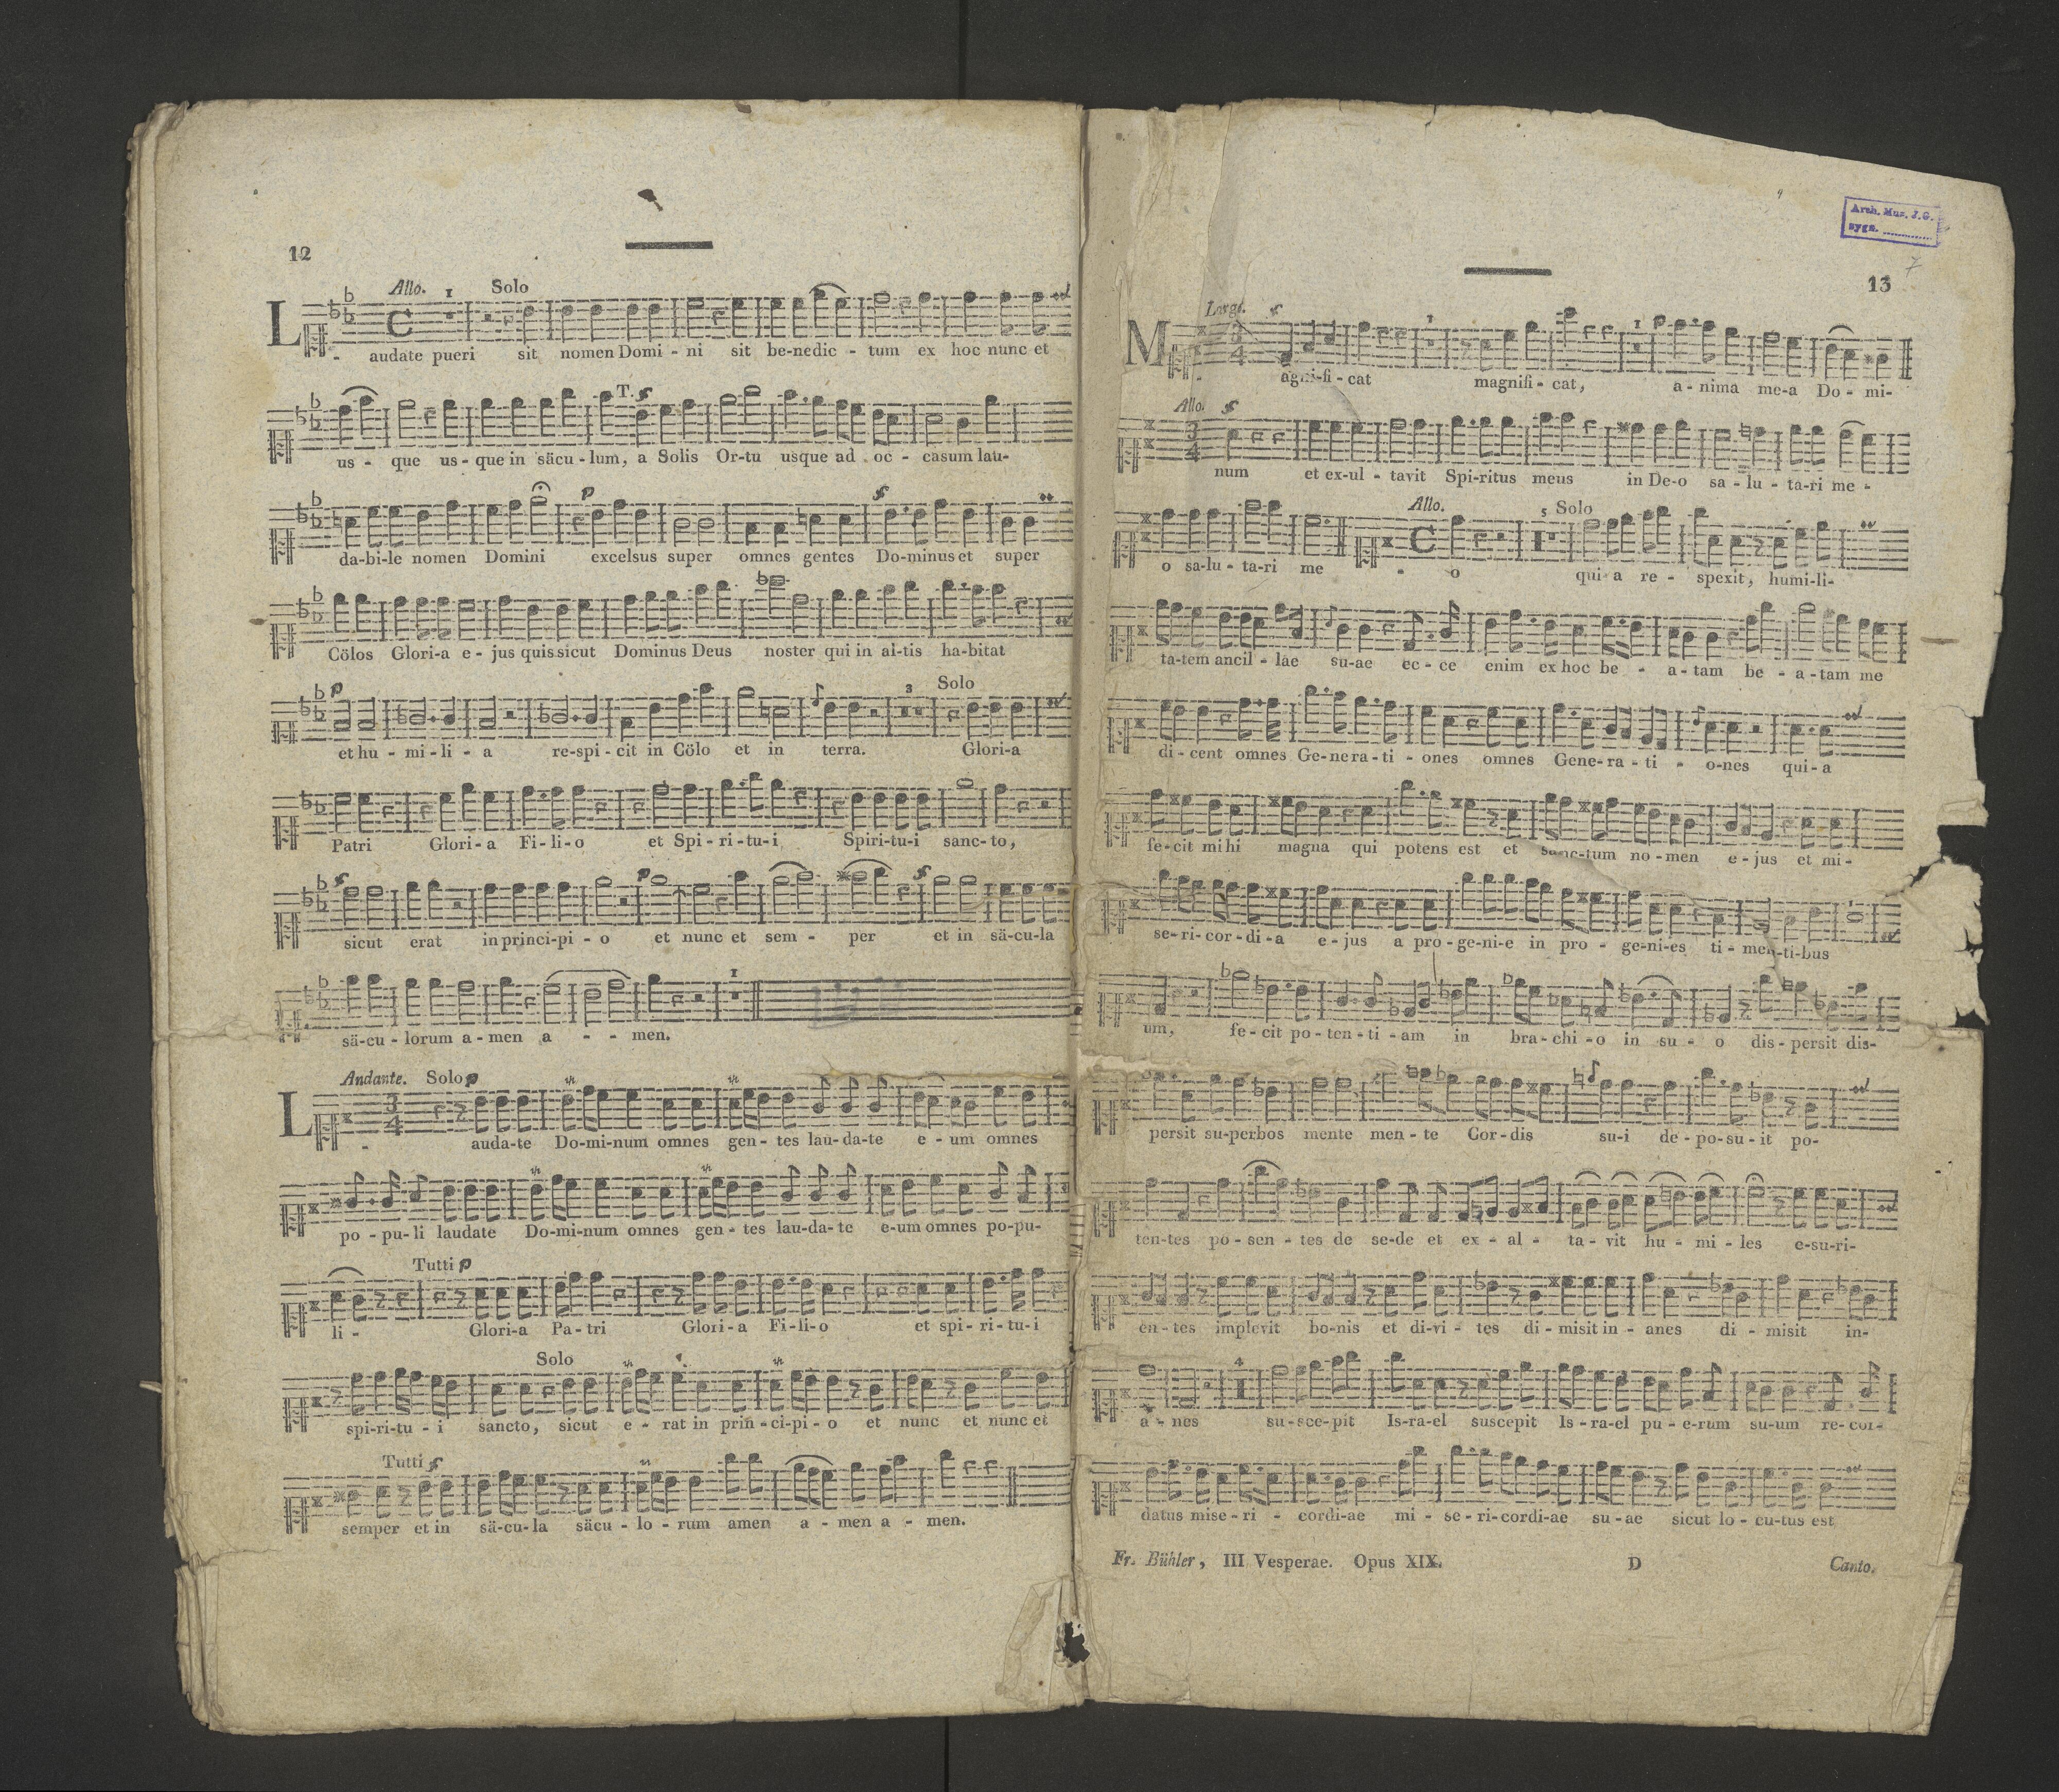 12
Allo. 1 Solo
L - audate pueri sit nomen Domi - ni sit be-nedic - tum ex hoc nunc et
T.
us - que us - que in säcu - lum, a Solis Or-tu usque ad oc - casum lau-
p
da-bi-le nomen Domini excelsus super omnes gentes Do-minus et super
Cölos Glori-a e - jus quis sicut Dominus Deus noster qui in al-tis ha-bitat
p 3 Solo
et hu - mi - li - a re-spi - cit in Cölo et in terra. Glori-a
Patri Glori - a Fi - li - o et Spi - ri - tu - i Spiri-tu-i sanc- to,
f p f
sicut erat in princi-pi - o et nunc et sem - per et in sä-cu-la
1
sä-cu - lorum a - men a - - men.
Andante. Solo p
L - auda-te Do-mi-num omnes gen - tes lau - da - te e - um omnes
po - pu- li laudate Do-mi-num omnes gen - tes lau-da- te e-um omnes po-pu-
Tutti p
li - Glori-a Pa - tri Glori - a Fi - li - o et spi - ri - tu - i
Solo
spi-ri-tu - i sancto, sicut e - rat in prin - ci-pi - o et nunc et nunc et
Tutti f
semper et in sä-cu-la säcu - lo - rum amen a - men a - men.
Arch. Mus. J.G.
sygn.
7
13
Largo. f 1 1 p
M - agni-fi - cat magnifi - cat, a - nima me-a Do - mi-
Allo. f
num et ex-ul - tavit Spi-ritus meus in De-o sa - lu - ta-ri me -
Allo. 5 Solo
o sa-lu - ta-ri me - o qui a re - spexit, humi-li-
ta-tem ancil - lae su-ae ec - ce enim ex hoc be - a - tam be - a - tam me
di - cent omnes Ge-nera - ti - ones omnes Gene- ra - ti - o-nes qui - a
fe-cit mihi magna qui potens est et sanc-tum no - men e - jus et mi -
se - ri- cor - di - a e - jus a pro - ge-ni-e in pro - ge-ni-es ti - men-ti-bus
um, fe - cit po - ten - ti - am in bra - chi - o in su - o dis - persit dis-
persit su-perbos mente men - te Cor - dis su-i de - po - su - it po-
ten-tes po - sen - tes de se-de et ex - al - ta - vit hu - mi - les e-su-ri-
en - tes implevit bo-nis et di-vi - tes di - misit in - anes di - misit in-
4
a - nes su - sce-pit Is-ra-el suscepit Is - ra-el pu - e-rum su-um re- cor-
datus mise - ri - cordi-ae mi - se - ri-cordi-ae su - ae sicut lo - cu-tus est
Fr. Bühler, III Vesperae. Opus XIX. D Canto.